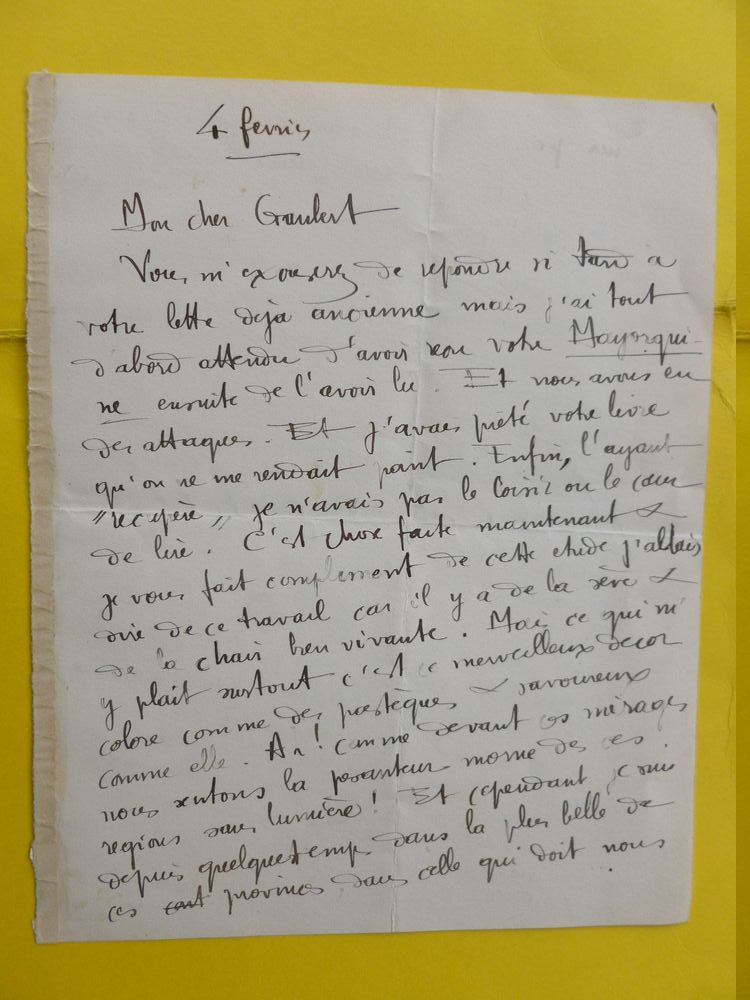 4 fevrier
Mon cher Gaulert
Vous m'excuserez de repondre si tard à
votre lettre déjà ancienne mais j'ai tout
d'abord attendu d'avoir reçu votre Mayorqui-
ne ensuite de l'avoir lu. Et nous avons eu
des attaques. Et j'avais prêté votre livre
qu'on ne me rendait point. Enfin, l'ayant
"recupéré" je n'avais pas le loisir ou le cœur
de lire. C'est chose faite maintenant &
je vous fait compliment de cette etude j'allais
dire de ce travail car il y a de la sève &
de la chair bien vivante. Mais ce qui m'
y plait surtout c'est ce merveilleux decor
coloré comme des pastèques & savoureux
comme elle. Ah! comme devant ces mirages
nous sentons la pesanteur morne de ces
regions sans lumière! Et cependant je suis
depuis quelque temps dans la plus belle de
ces provinces dans celle qui doit nous